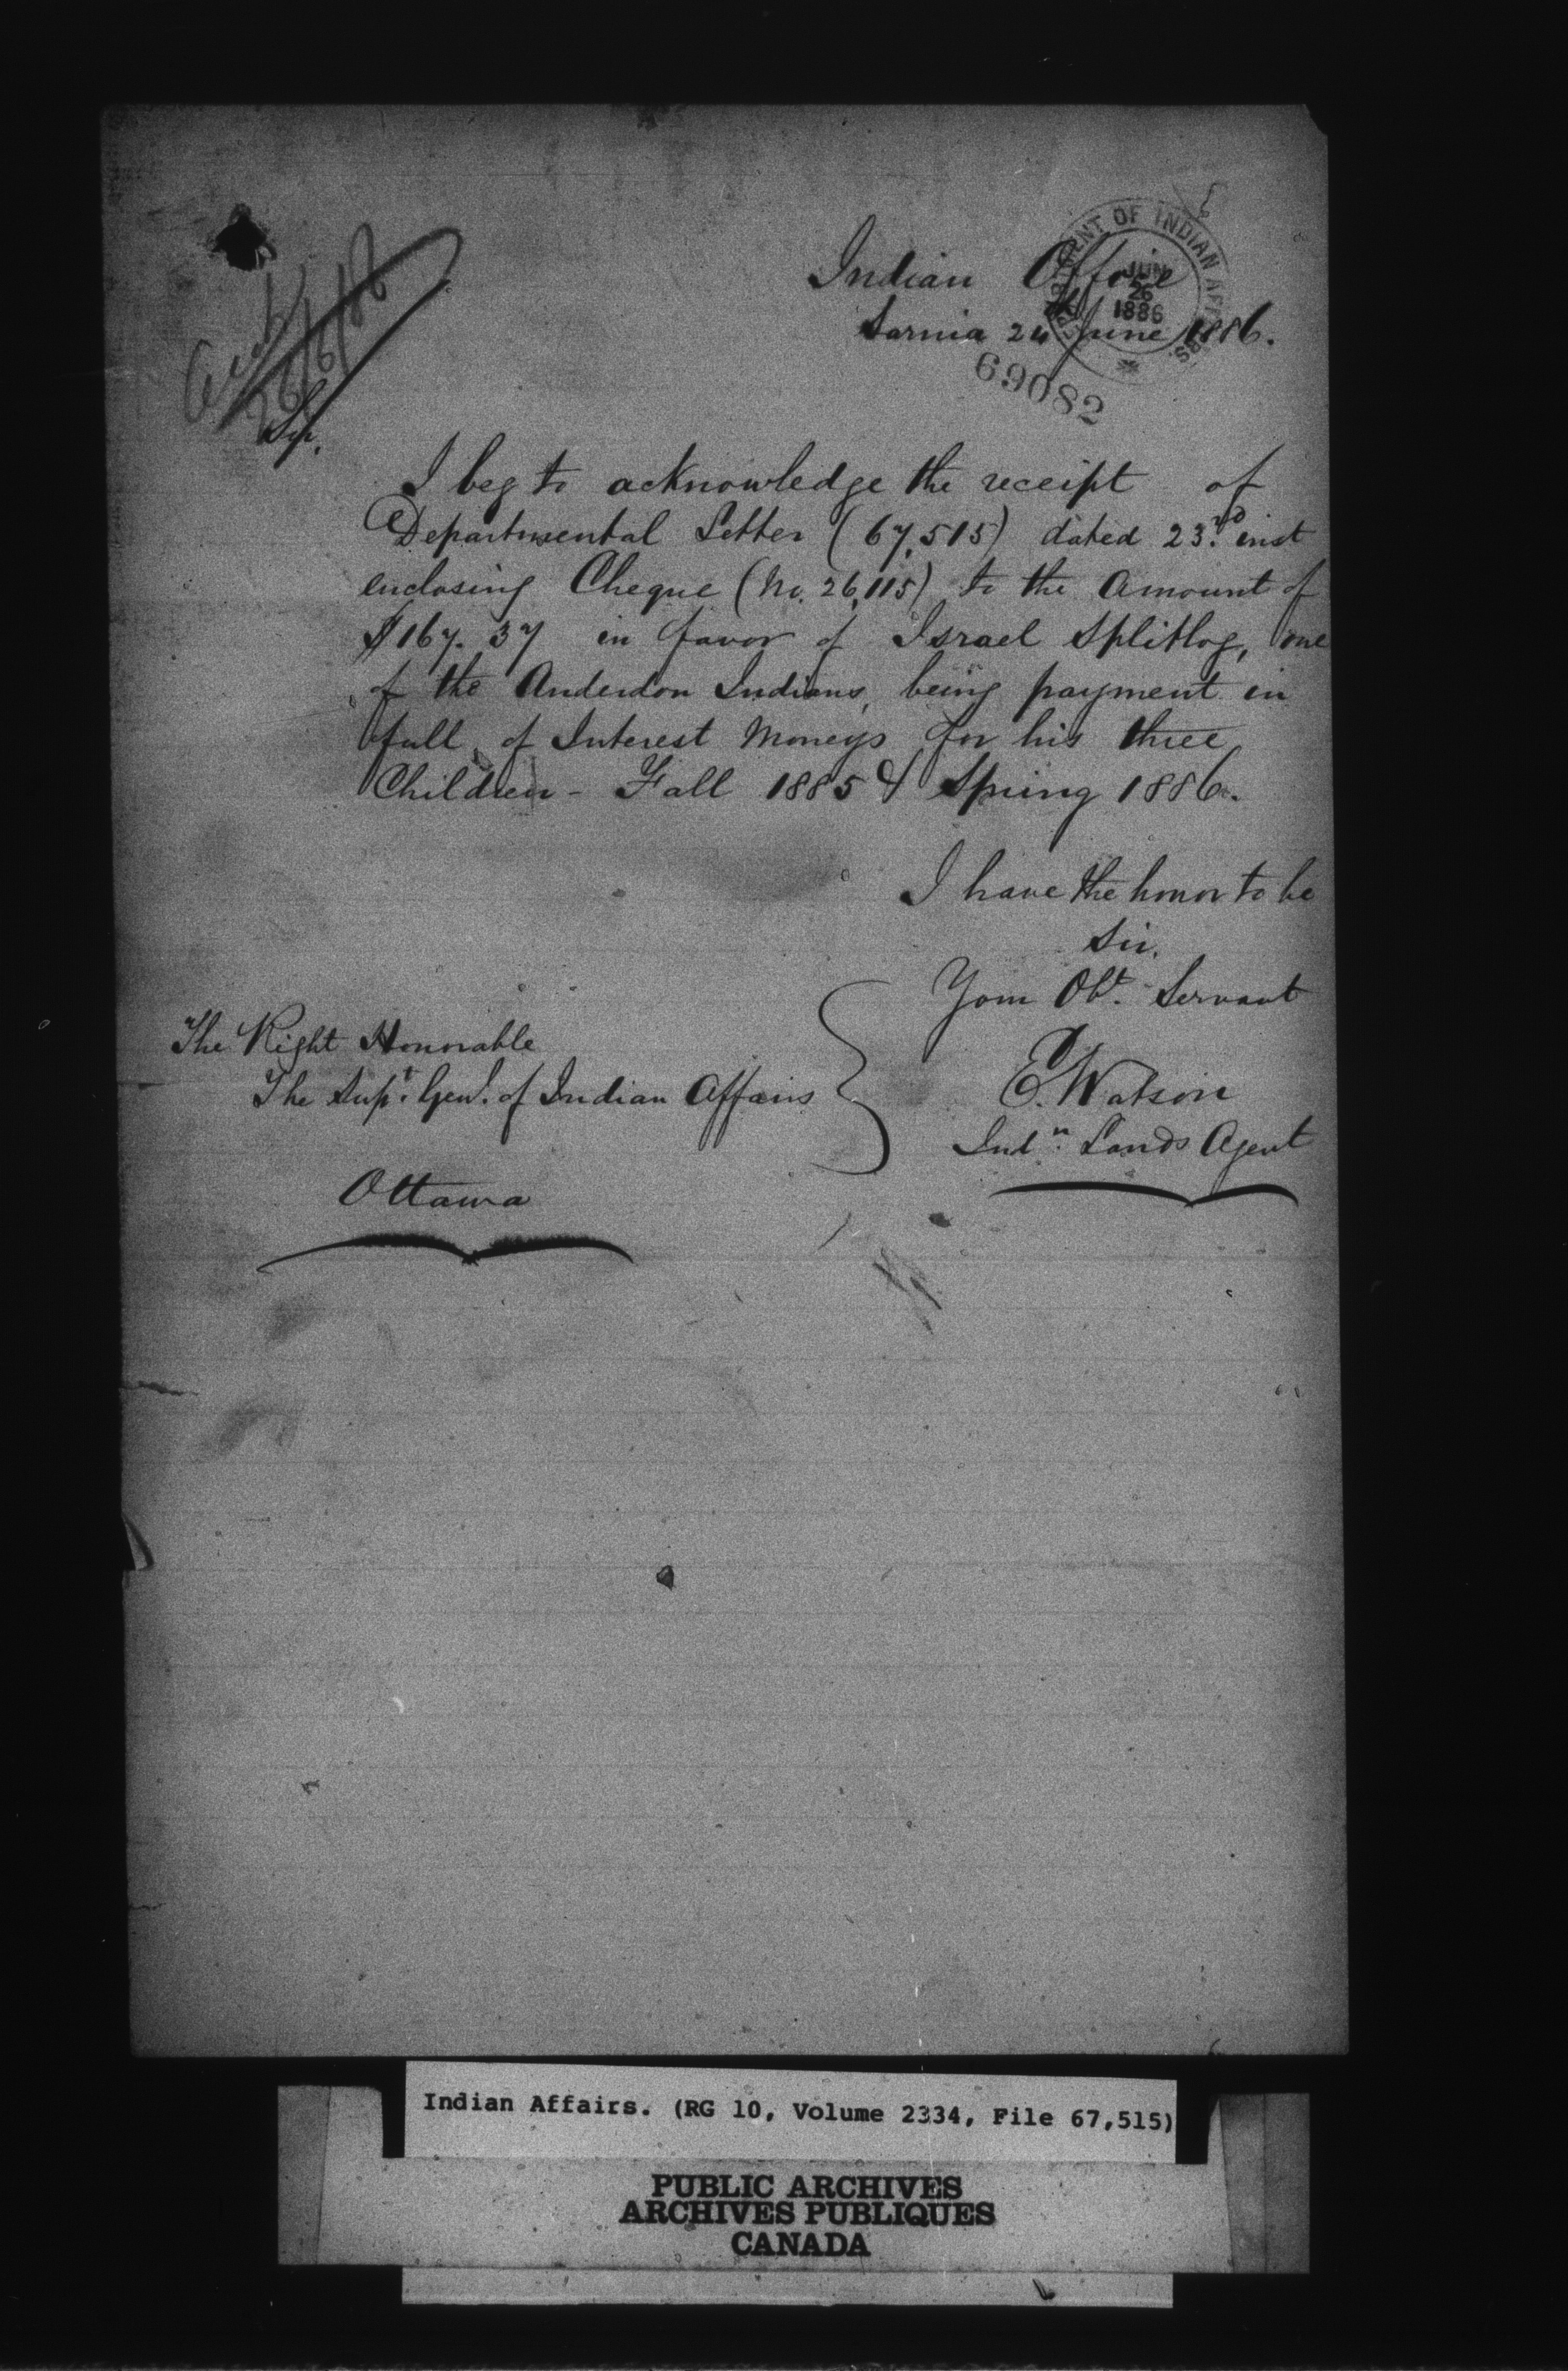 DEPARTMENT OF INDIAN AFFAIRS
JUN
26
1886
Indian Office
Sarnia 24 June 1886.
69082
26/6/86
Sir,
I beg to acknowledge the receipt of
Departmental Letter (67,515) dated 23rd. inst
enclosing Cheque (No. 26,115) to the amount of
$167.37 in favor of Israel Splitlog, one
of the Anderdon Indians, being payment in
full of Interest Moneys for his three
Children - Fall 1885 & Spring 1886.
I have the honor to be
Sir,
Your Obt. Servant
E. Watson
Indn. Lands Agent
The Right Honorable
The Supt. Genl. of Indian Affairs
Ottawa
Indian Affairs. (RG 10, Volume 2334, File 67,515)
PUBLIC ARCHIVES
ARCHIVES PUBLIQUES
CANADA